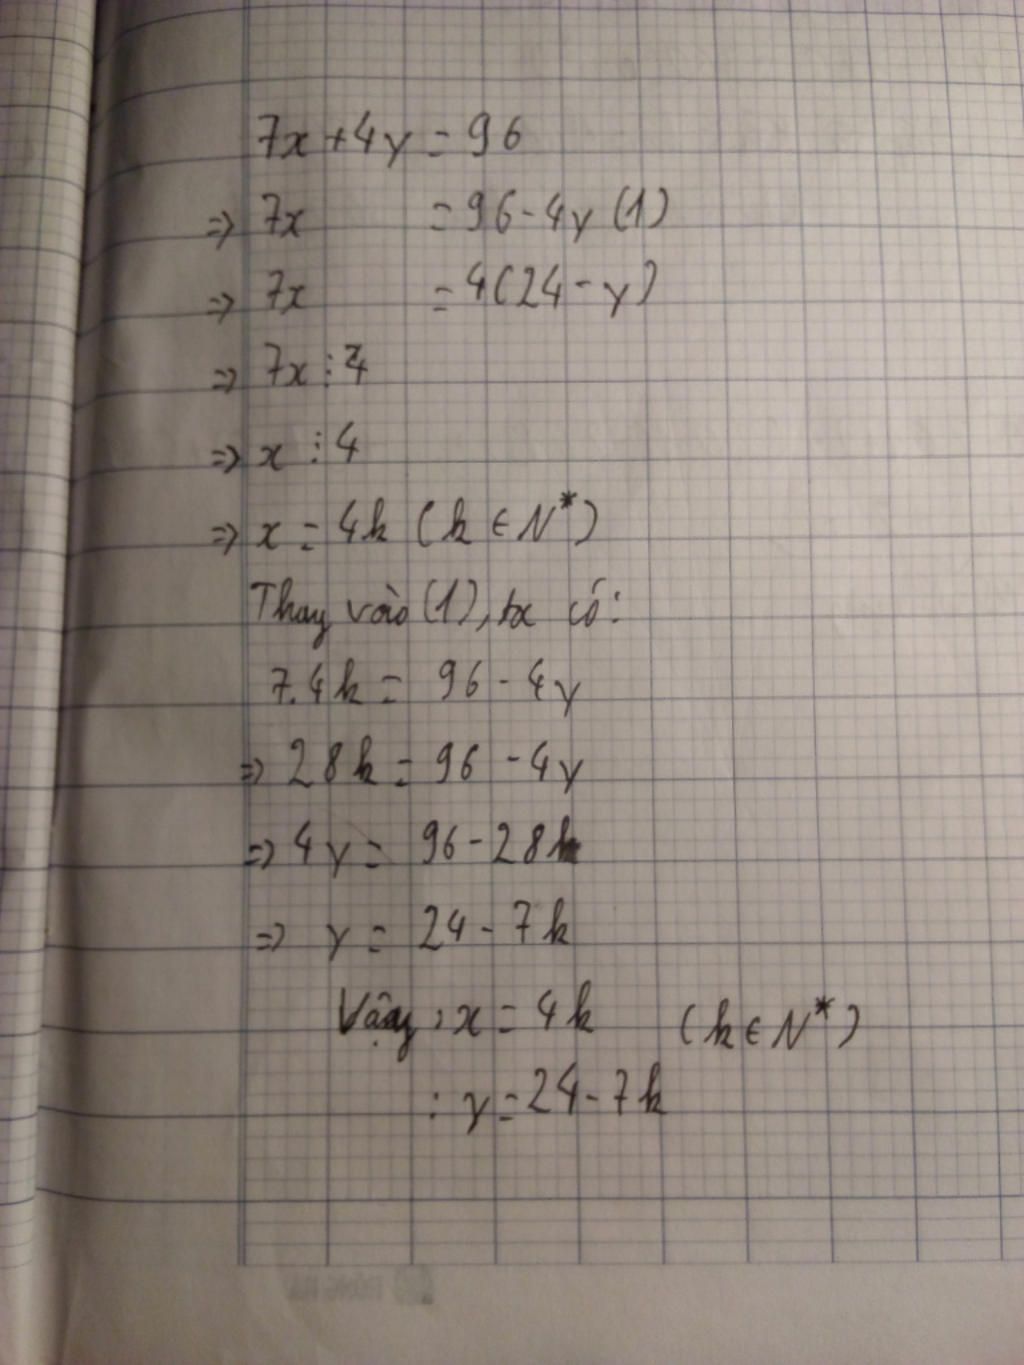 7x + 4y = 96
=> 7x = 96 - 4y (1)
=> 7x = 4(24 - y)
=> 7x ⋮ 4
=> x ⋮ 4
=> x = 4k (k ∈ N*)
Thay vào (1), ta có:
7.4k = 96 - 4y
=> 28k = 96 - 4y
=> 4y = 96 - 28k
=> y = 24 - 7k
Vậy : x = 4k (k ∈ N*)
: y = 24 - 7k